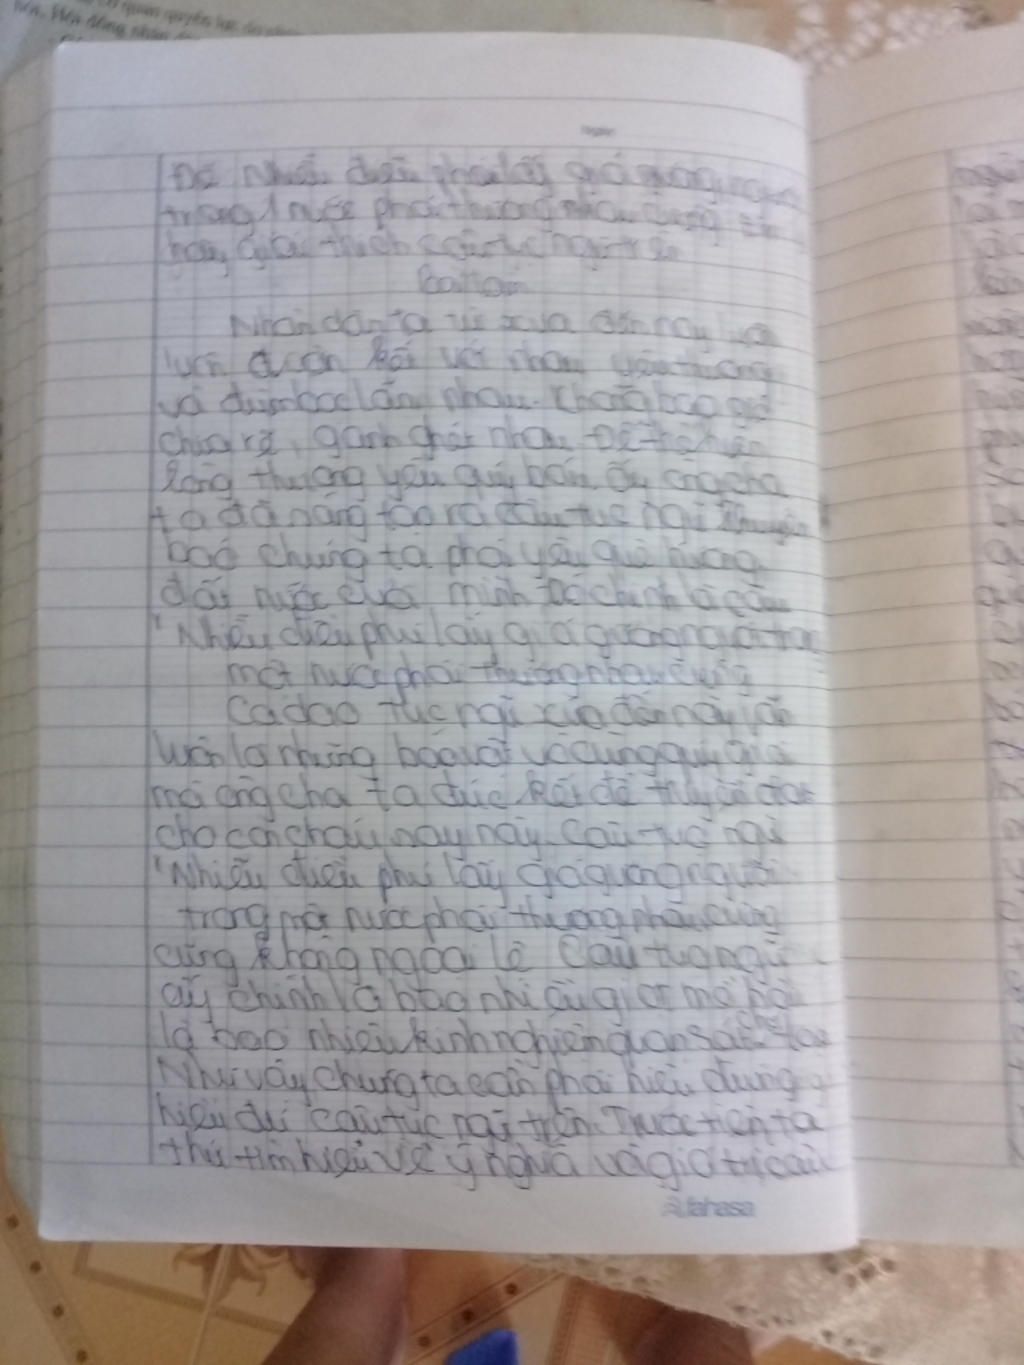 Đề Nhiễu điều phủ lấy giá gương người
trong 1 nước phải thương nhau cùng
hãy giải thích câu tục ngữ trên
Bài làm
Nhân dân ta từ xưa đến nay luôn
luôn đoàn kết với nhau yêu thương
và đùm bọc lẫn nhau. Không bao giờ
chia rẽ, ganh ghét nhau. Để thể hiện
lòng thương yêu quý báu ấy ông cha
ta đã sáng tạo ra câu tục ngữ khuyên
bảo chúng ta phải yêu quê hương
đất nước của mình Đó chính là câu
"Nhiễu điều phủ lấy giá gương người trong
một nước phải thương nhau cùng
Ca dao tục ngữ xưa đến nay vẫn
luôn là những báu vật vô cùng quý giá
mà ông cha ta đúc kết để truyền đạt
cho con cháu sau này. Câu tục ngữ
"Nhiễu điều phủ lấy giá gương người
trong một nước phải thương nhau cùng
cũng không ngoại lệ Câu tục ngữ
ấy chính là bao nhiêu giọt mồ hôi
là bao nhiêu kinh nghiệm quan sát
Như vậy chúng ta cần phải hiểu đúng
hiểu đủ câu tục ngữ trên. Trước tiên ta
thử tìm hiểu về ý nghĩa và giá trị câu
Fahasa